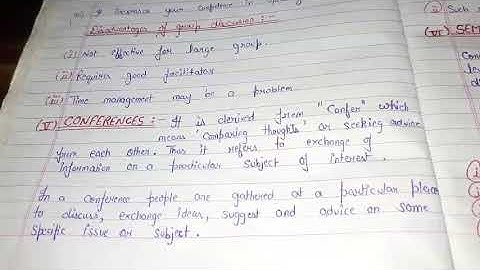 It increases your confidence in
Disadvantages of group discussion :-
(i) Not effective for large group.
(ii) Requires good facilitator
(iii) Time management may be a problem
(V) CONFERENCES :- It is derived from "Confer" which
means 'Comparing thoughts' or seeking advice
from each other. Thus it refers to exchange of
information on a particular subject of interest.
In a conference people are gathered at a particular place
to discuss, exchange ideas, suggest and advice on some
specific issue or subject.
(VI) SEM
Con